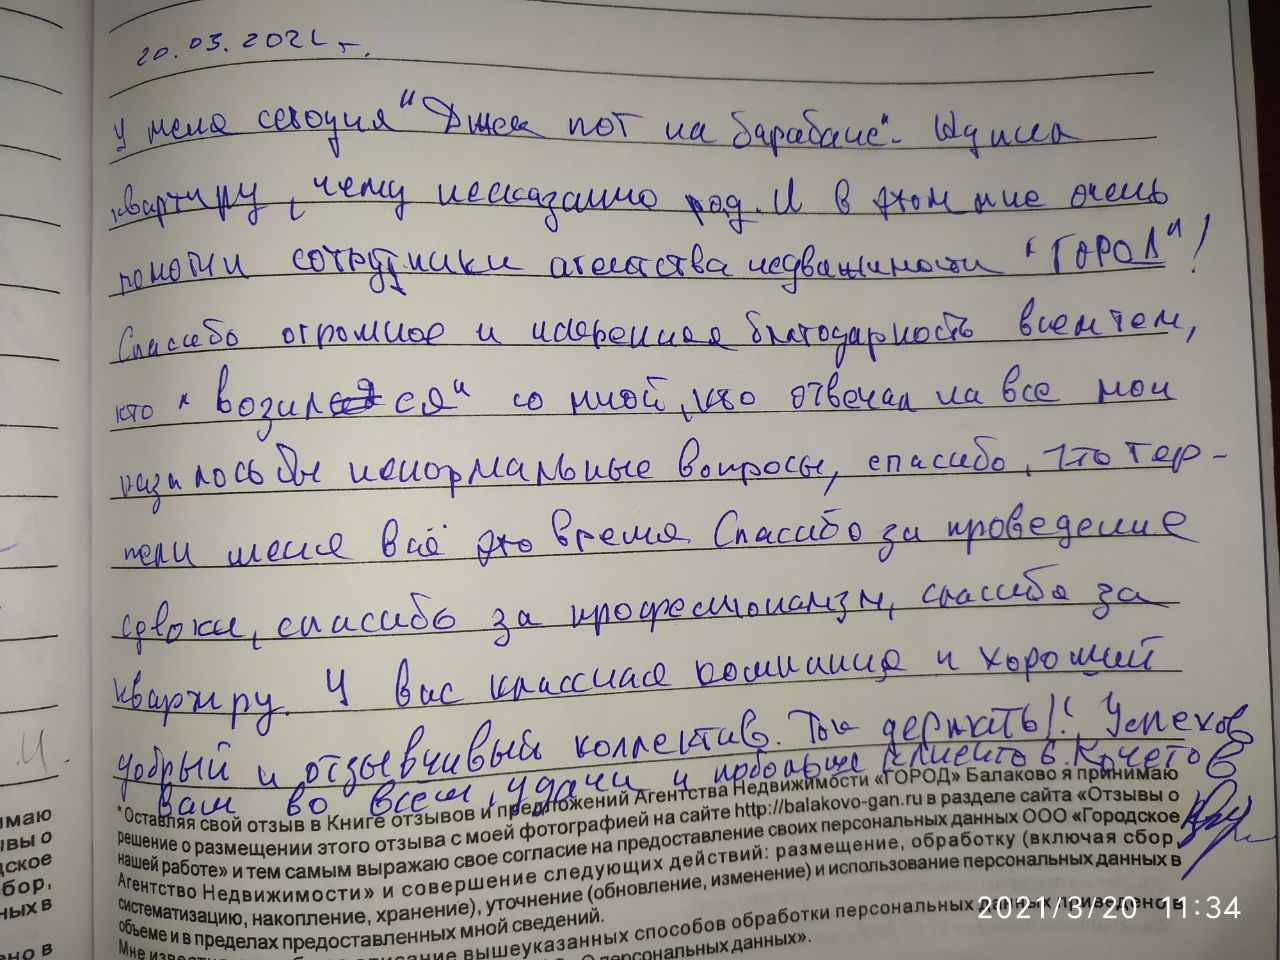 20.03.2021 г.
У меня сегодня "Джек пот на барабане". Купила
квартиру, чему несказанно рад. И в этом мне очень
помогли сотрудники агентства недвижимости "ГОРОД"!
Спасибо огромное и искренняя благодарность всем тем,
кто "возился" со мной, кто отвечал на все мои
казалось бы ненормальные вопросы, спасибо, что тер-
пели меня всё это время. Спасибо за проведение
сделки, спасибо за профессионализм, спасибо за
квартиру. У вас классная компания и хороший
добрый и отзывчивый коллектив. Так держать!! Успехов
вам во всем, удачи и побольше клиентов. Кочетов В
*Оставляя свой отзыв в Книге отзывов и предложений Агентства Недвижимости «ГОРОД» Балаково я принимаю
решение о размещении этого отзыва с моей фотографией на сайте http://balakovo-gan.ru в разделе сайта «Отзывы о
нашей работе» и тем самым выражаю свое согласие на предоставление своих персональных данных ООО «Городское
Агентство Недвижимости» и совершение следующих действий: размещение, обработку (включая сбор,
систематизацию, накопление, хранение), уточнение (обновление, изменение) и использование персональных данных в
объеме и в пределах предоставленных мной сведений.
2021/3/20 11:34